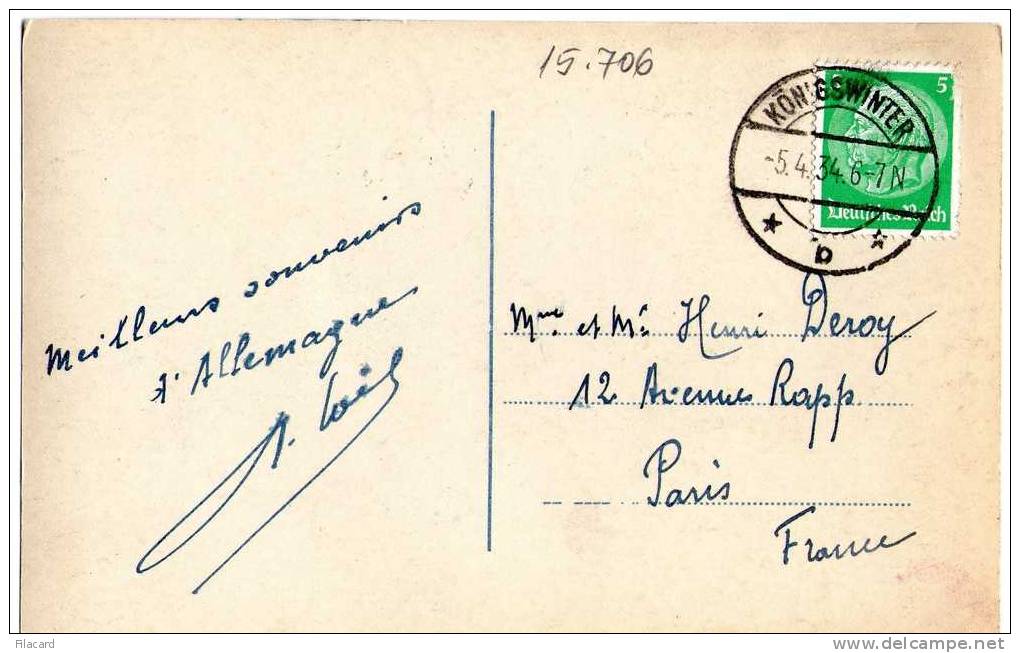 15.706
5
KÖNIGSWINTER
-5.4.34.6-7N
b
Deutsches Reich
Meilleurs souvenirs
d'Allemagne
Mme et Mr Henri Deroy
12 Avenue Rapp.
Paris
France
Filacard
www.delcampe.net